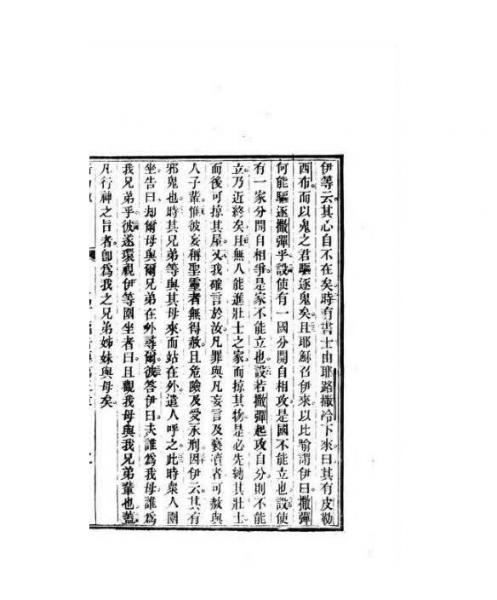 伊等云其心自不在矣時有書士由耶路撒冷下來曰其有皮勒
西布而以鬼之君驅逐鬼矣且耶穌召伊來以比喻謂伊曰撒彈
何能驅逐撒彈乎設使有一國分開自相攻是國不能立也設使
有一家分開自相爭是家不能立也設若撒彈起攻自分則不能
立乃近終矣且無人能進壯士之家而掠其物是必先縛其壯士
而後可掠其屋又我確言於汝凡罪與凡妄言及褻瀆者可赦與
人子輩惟彼妄稱聖靈者無得赦且危險及受永刑因伊云其有
邪鬼也時其兄弟等與其母來而站在外遣人呼之此時衆人圍
坐告曰却爾母與爾兄弟在外尋爾彼答伊曰夫誰為我母誰為
我兄弟乎彼遂環視伊等圍坐者曰且觀我母與我兄弟輩也蓋
凡行神之旨者即為我之兄弟姊妹與母矣